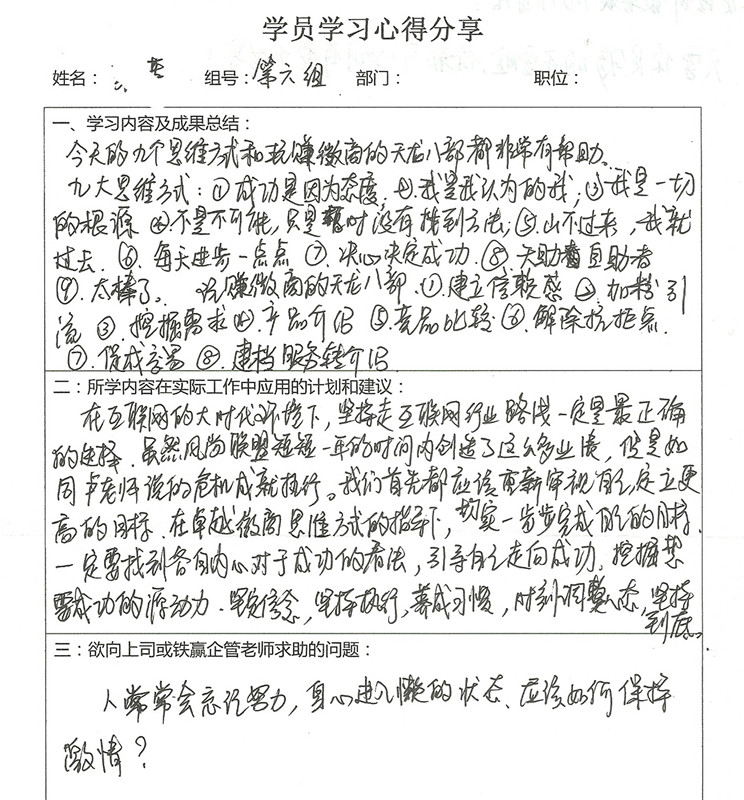 学员学习心得分享
姓名： 组号：第六组 部门： 职位：
一、学习内容及成果总结：
今天的九个思维方式和玩赚微商的天龙八部都非常有帮助。
九大思维方式：①成功是因为态度，②我是我认为的我；③我是一切
的根源 ④不是不可能，只是暂时没有找到方法；⑤山不过来，我就
过去. ⑥. 每天进步一点点 ⑦. 决心决定成功. ⑧. 天助自助者
⑨. 太棒了。 玩赚微商的天龙八部. ①. 建立信赖感 ②. 加粉引
流 ③. 挖掘需求 ④. 产品介绍 ⑤. 竞品比较 ⑥. 解除抗拒点.
⑦. 促成交易 ⑧. 建档服务转介绍
二：所学内容在实际工作中应用的计划和建议：
在互联网的大时代环境下，坚持走互联网行业路线一定是最正确
的选择. 虽然风尚联盟短短一年的时间内创造了这么多业绩，但是如
同卢老师说的危机成就执行。我们首先都应该重新审视自己，定立更
高的目标. 在卓越微商思维方式的指导下，切实一步步完成自己的目标.
一定要找到各自内心对于成功的看法，引导自己走向成功. 挖掘想
要成功的源动力. 坚定信念，坚持执行，养成习惯，时刻调整心态，坚持
到底。
三：欲向上司或铁赢企管老师求助的问题：
人常常会忘记努力，身心进入懒的状态、应该如何保持
激情？